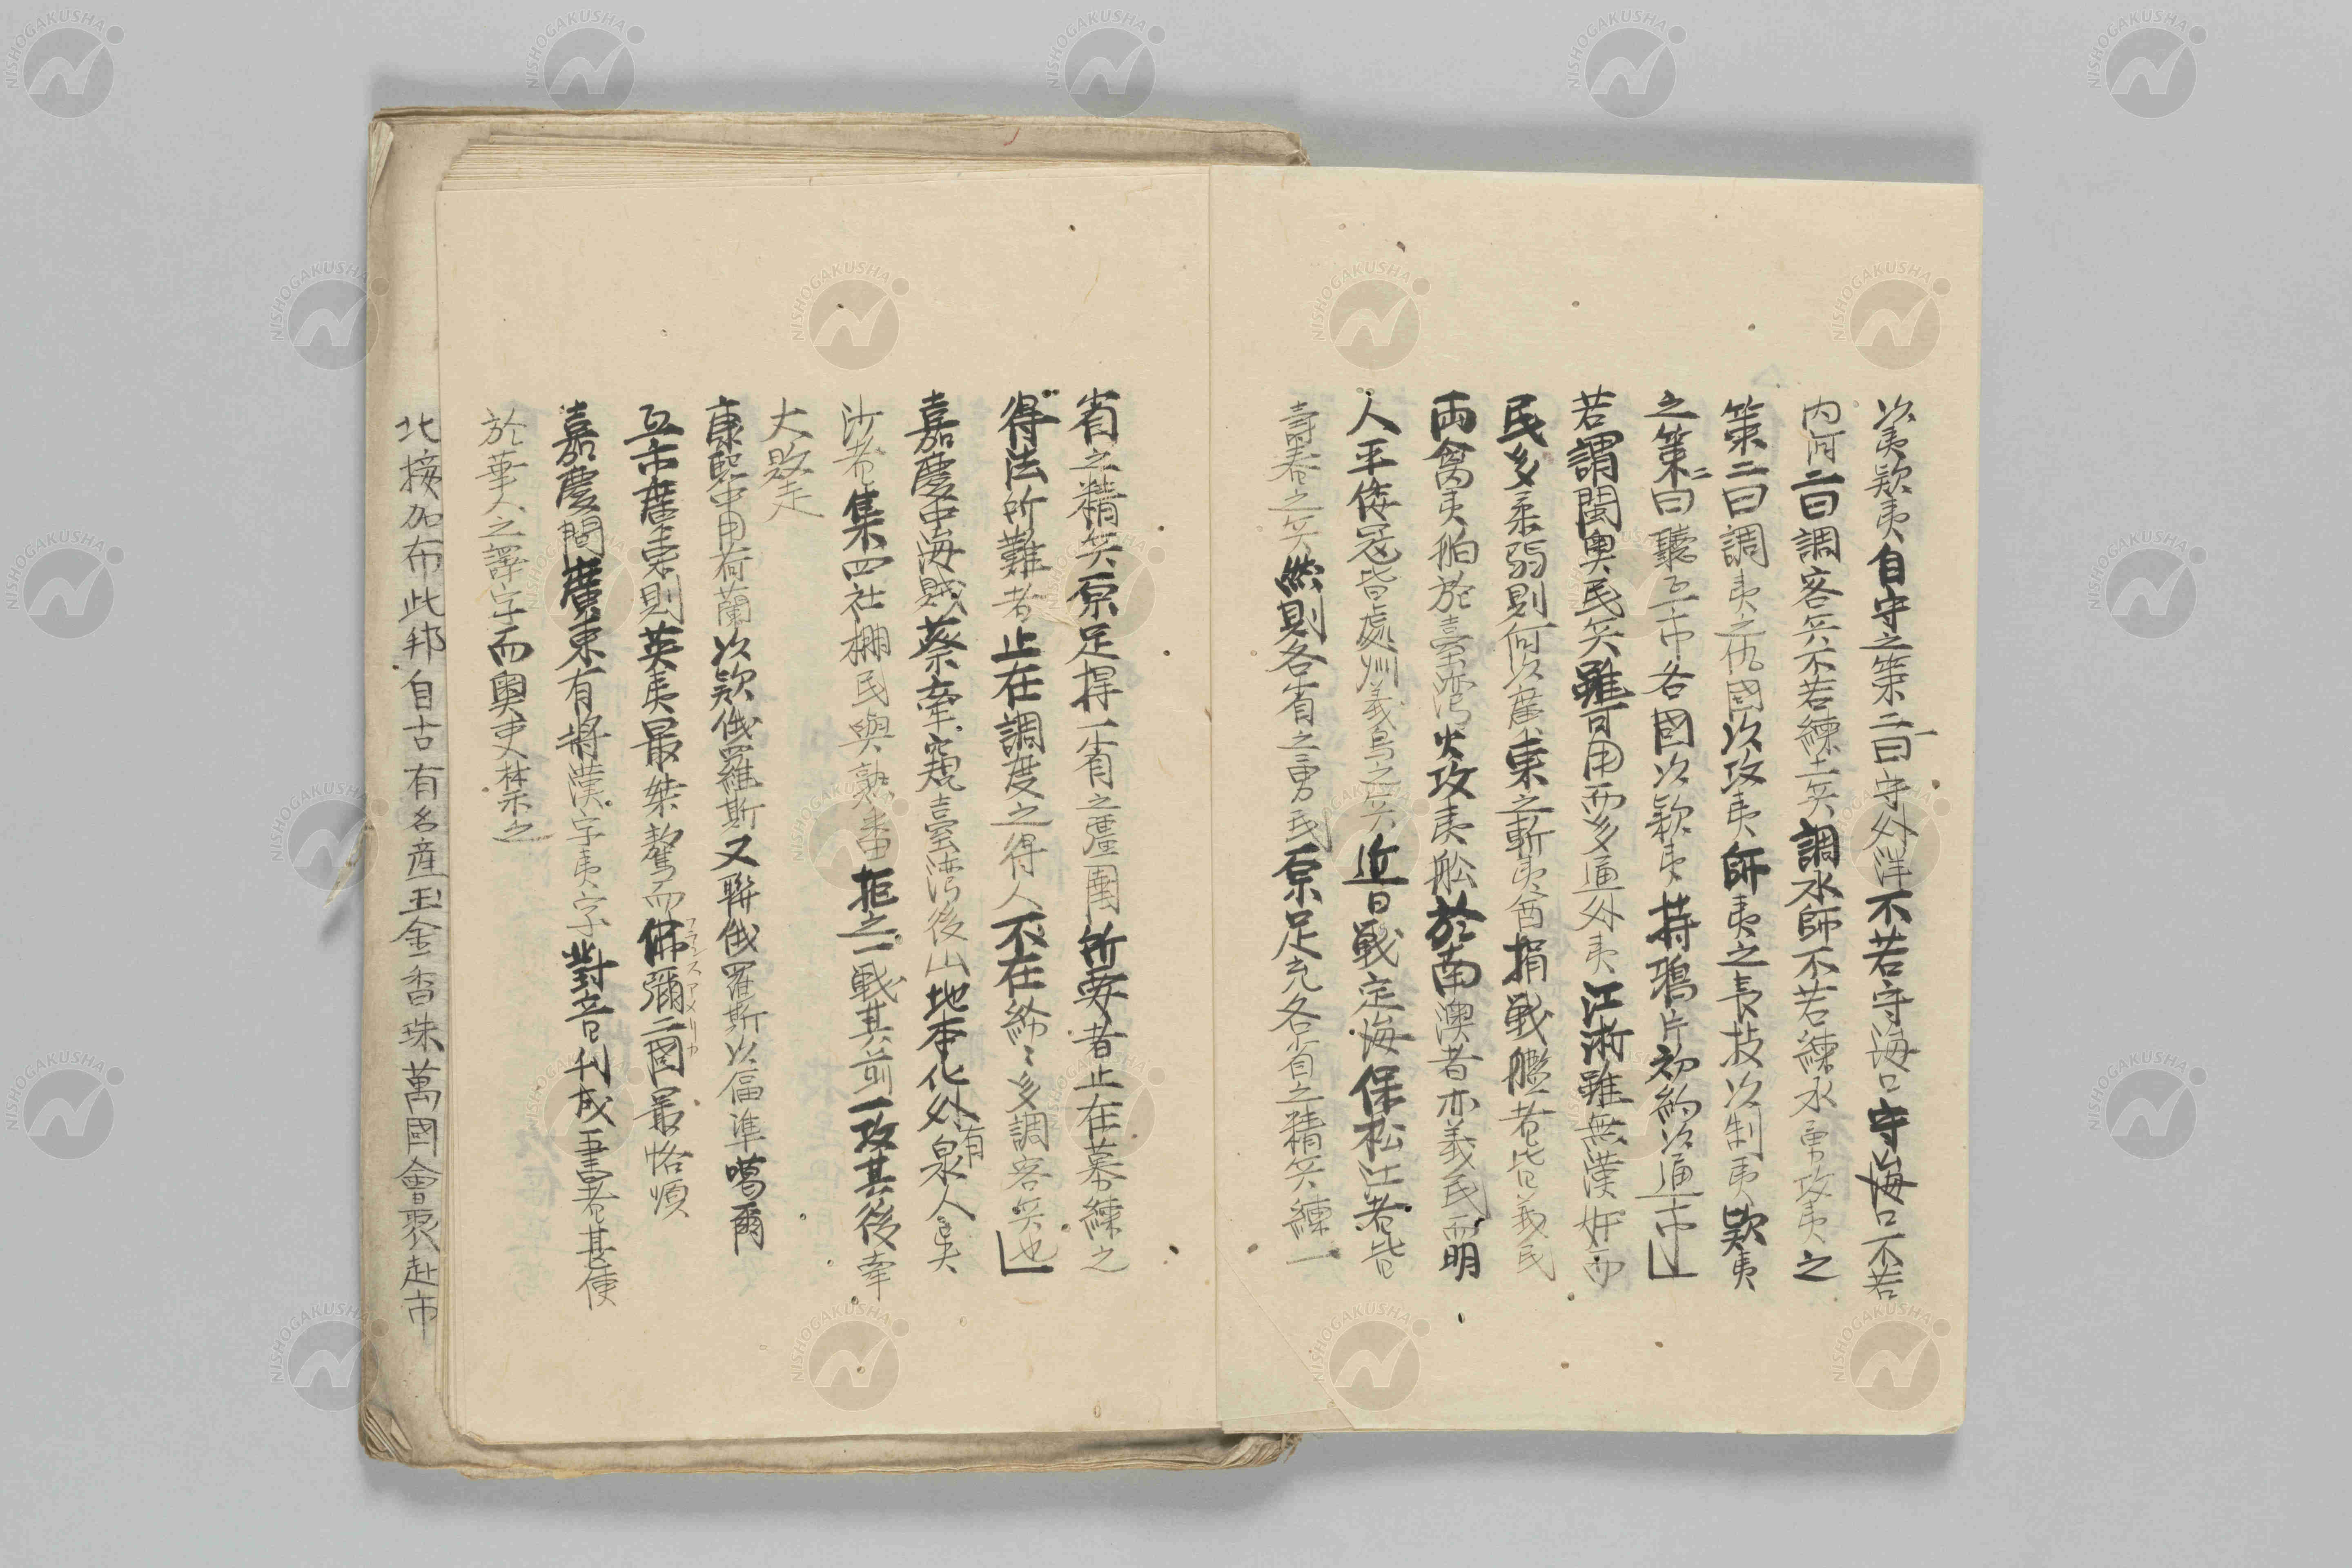 以夷款夷自守之策二一曰守外洋不若守海口守海口不若
内河二曰調客兵不若練土兵調水師不若練水勇攻夷之
策二曰調夷之仇國以攻夷師夷之長技以制夷款夷
之策二曰聽互市各國以款夷持鴉片初約以通市」
若謂閩奥民兵雖可用而多通外夷江浙雖無漢奸而
民多柔弱則何以廣東之斬夷酋捐戰艦者皆義民
両禽夷舶於臺湾火攻夷舩於南澳者亦義民而明
人平倭冦皆處州義烏之兵近日戰定海保松江者皆
壽春之兵然則各省之勇民原足充各省之精兵練一
省之精兵原足捍一省之疆圉所要者止在募練之
得法所難者止在調度之得人不在紛〻多調客兵也」
嘉慶中海賊蔡牽窺臺湾後山地本化外有泉人吳
沙者集四社棚民與熟番拒之一戰其前一攻其後牽
大敗走
康熙中用荷蘭以款俄羅斯又聯俄羅斯以偪準噶爾
互市廣東則英夷最桀驁而佛彌二國最恪順
フランス アメリカ
嘉慶間廣東有將漢字夷字對音刊成書者甚便
於華人之譯字而奥吏禁之
北接加布此邦自古有名産玉金香珠萬國會聚赴市
NISHOGAKUSHA